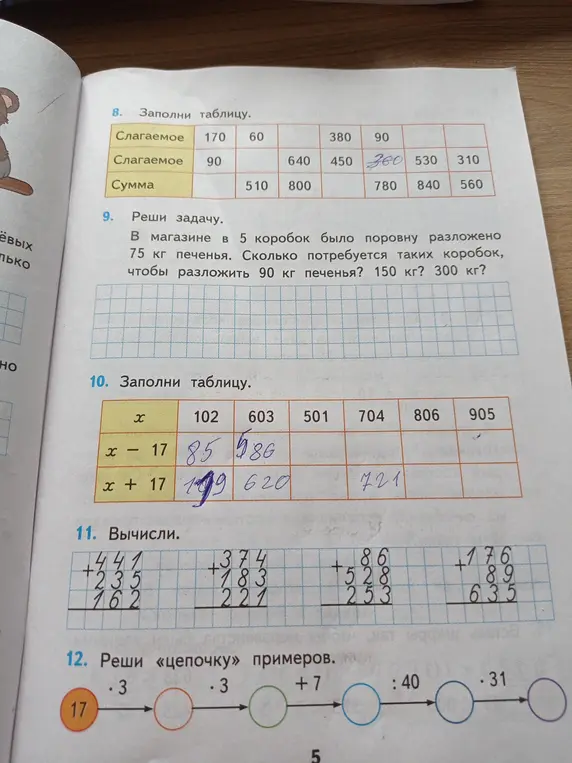 ёвых
лько
но
8. Заполни таблицу.
Слагаемое 170 60 380 90
Слагаемое 90 640 450 300 530 310
Сумма 510 800 780 840 560
9. Реши задачу.
В магазине в 5 коробок было поровну разложено
75 кг печенья. Сколько потребуется таких коробок,
чтобы разложить 90 кг печенья? 150 кг? 300 кг?
10. Заполни таблицу.
x 102 603 501 704 806 905
x − 17 85 586
x + 17 119 620 721
11. Вычисли.
+441 +374 +86 +176
235 183 528 89
162 221 253 635
12. Реши «цепочку» примеров.
· 3 · 3 + 7 : 40 · 31
17
5